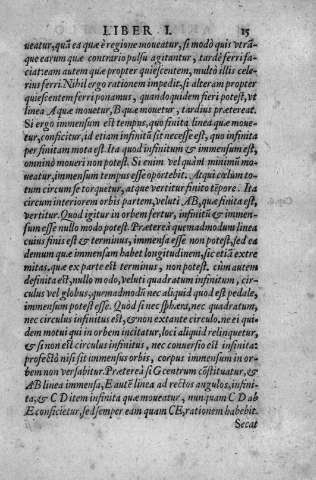 LIBER I. 15
ueatur, quã ea quæ è regione moueatur, si modò quis vtrã-
que earum quæ contrario passu agitantur, tardè ferri fa-
ciat: eam autem quæ propter quiescentem, multò illis cele-
rius ferri. Nihil ergo rationem impedit, si alteram propter
quiescentem ferri ponamus, quandoquidem fieri potest, vt
linea A quæ mouetur, B quæ mouetur, tardius prætereat.
Si ergo immensum est tempus, quo finita linea quæ moue-
tur, conficitur, id etiam infinitũ sit necesse est, quo infinita
per finitam mota est. Ita quod infinitum & immensum est,
omninò moueri non potest. Si enim vel quàm minimũ mo-
ueatur, immensum tempus esse oportebit. Atqui cælum to-
tum circum se torquetur, atque vertitur finito tẽpore. Ita
circum interiorem orbis partem, veluti AB, quæ finita est,
vertitur. Quod igitur in orbem fertur, infinitũ & immen-
sum esse nullo modo potest. Prætereà quemadmodum linea
cuius finis est & terminus, immensa esse non potest, sed ea
demum quæ immensam habet longitudinem, sic etiã extre
mitas, quæ ex parte est terminus, non potest. cùm autem
definita est, nullo modo, veluti quadratum infinitum, cir-
culus vel globus, quemadmodũ nec aliquid quod est pedale,
immensum potest esse. Quòd si nec sphæra, nec quadratum,
nec circulus infinitus est, & non extante circulo, ne ei qui-
dem motui qui in orbem incitatur, loci aliquid relinquetur,
& si non est circulus infinitus, nec conuersio est infinita:
profectò nisi sit immensus orbis, corpus immensum in or-
bem non versabitur. Prætereà si G centrum cõstituatur, &
AB linea immensa, E autẽ linea ad rectos angulos, infini-
ta, & CD item infinita quæ moueatur, nunquam CD ab
E conficietur, sed semper eam quam CE, rationem habebit.
Secat